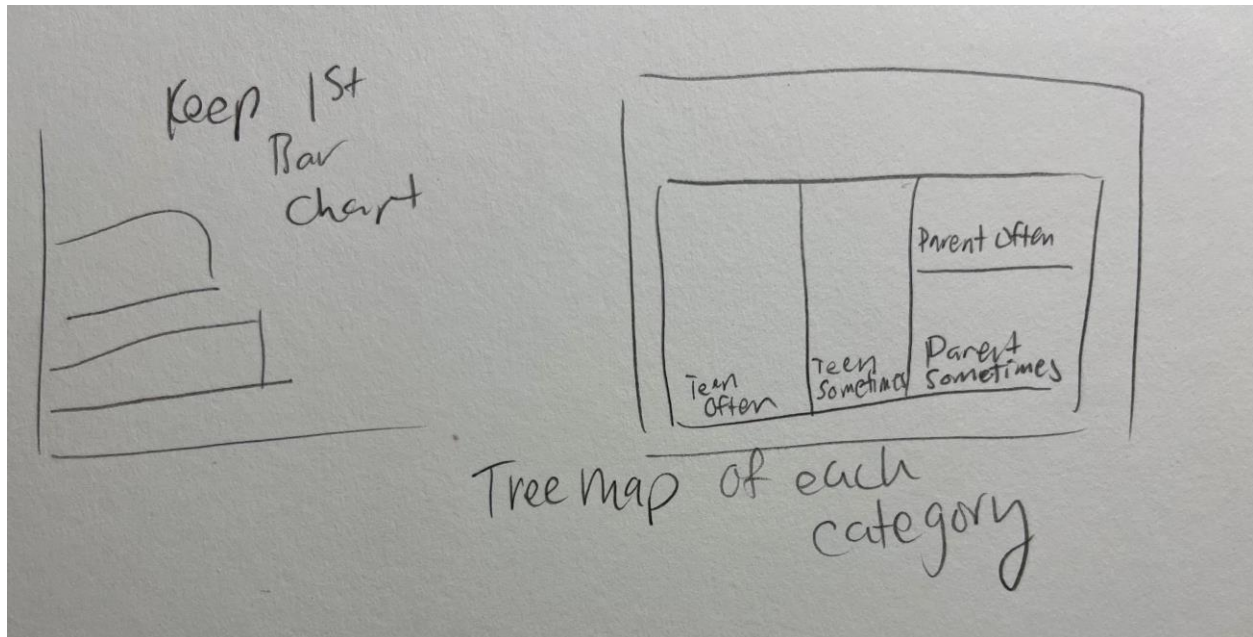 Keep 1st
Bar
Chart
Parent Often
Teen
Often
Teen
Sometimes
Parent
Sometimes
Tree map of each
category